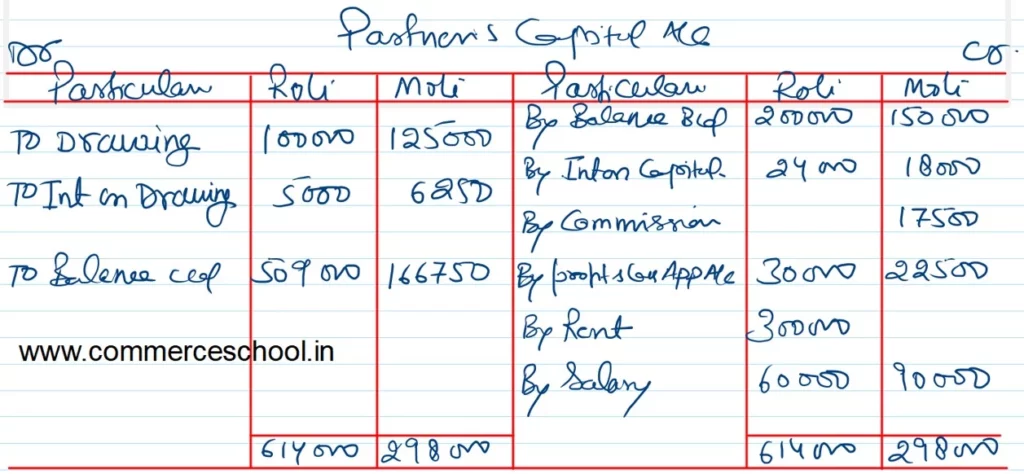 Partner's Capital A/c
Dr Cr.
Particular Roli Moli Particular Roli Moli
By Balance B/d 200000 150000
To Drawing 100000 125000
By Int on Capital 24000 18000
To Int on Drawing 5000 6250
By Commission 17500
To Balance c/d 509000 166750 By profit & loss App A/c 30000 22500
By Rent 300000
www.commerceschool.in
By Salary 60000 90000
614000 298000 614000 298000